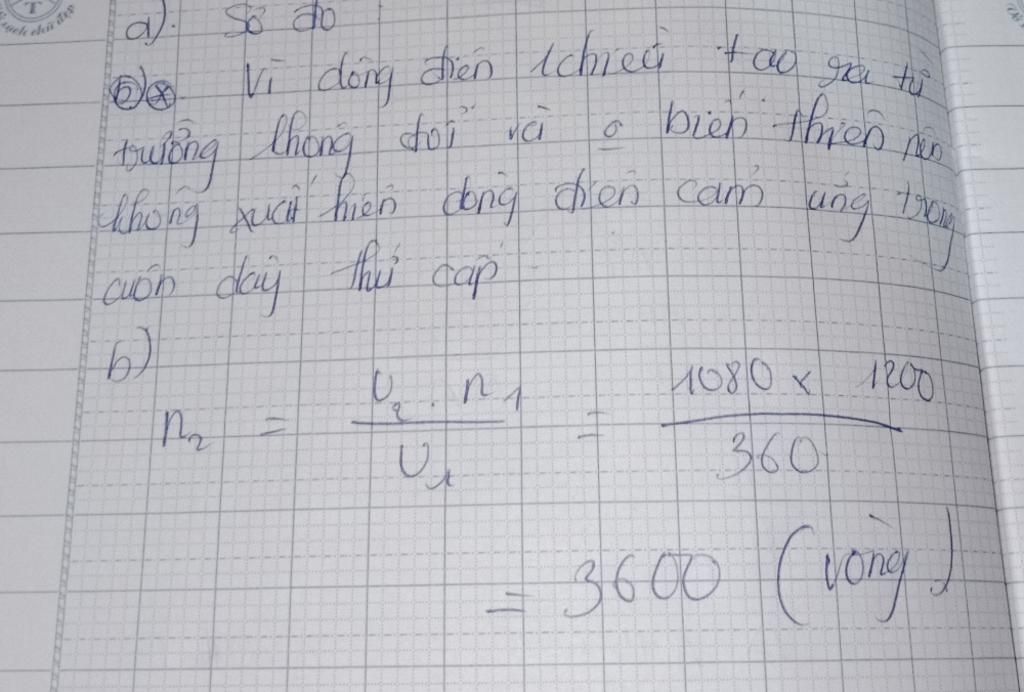 a). Sơ đồ
Vì dòng điện 1 chiều tạo ra từ
trường không đổi và o biến thiên nên
không xuất hiện dòng điện cảm ứng trong
cuộn dây thứ cấp
b)
n₂ = U₂ . n₁ / U₁ = 1080 x 1200 / 360
= 3600 (vòng)